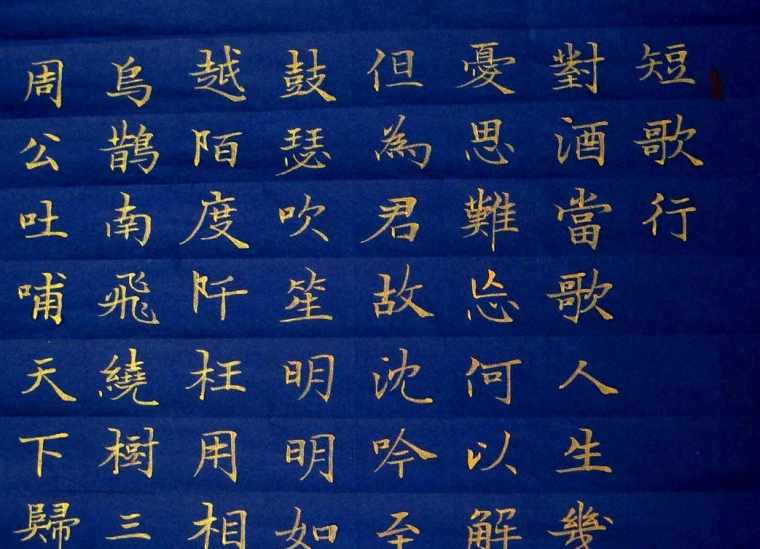 短歌行
對酒當歌人生幾
憂思難忘何以解
但為君故沈吟至
鼓瑟吹笙明明如
越陌度阡枉用相
烏鵲南飛繞樹三
周公吐哺天下歸